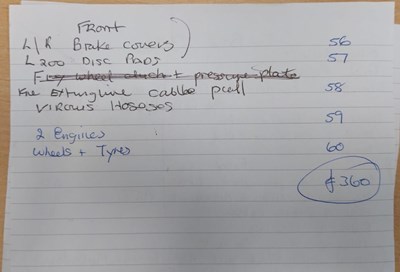 Front
L/R Brake covers 56
L200 Disc Pads 57
Fly wheel clutch + pressure plate
Fire Extinguire cabbe pcell 58
VIROUS HOSESES
59
2 Engines
wheels + Tyres 60
£360